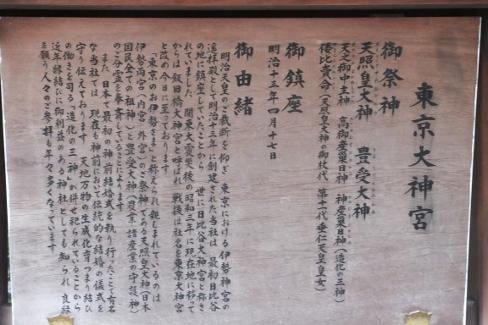 東京大神宮
御祭神
天照皇大神　豊受大神
天之御中主神　高御産巣日神　神産巣日神（造化の三神）
倭比賣命（天照皇大神の御杖代　第十一代　垂仁天皇皇女）
御鎮座
明治十三年四月十七日
御由緒
明治天皇のご裁断を仰ぎ　東京における伊勢神宮の
遙拝殿として明治十三年に創建された当社は　最初日比谷
の地に鎮座していたことから　世に日比谷大神宮と称さ
れていました　関東大震災後の昭和三年に現在地に移って
からは　飯田橋大神宮と呼ばれ　戦後は社名を東京大神宮
と改め今日に至っております
「東京のお伊勢さま」と称えられ親しまれているのは
伊勢両宮（内宮・外宮）のご祭神である天照皇大神（日本
国民全ての祖神）と豊受大神（農業　諸産業の守護神）
のご分霊を奉斎していることによります
また　日本で最初の神前結婚式を執り行ったことで有名
な当社では　現在も神前において伝統的な結婚の儀式を
守り伝えております　天地万物の生成化育つまり結び
の働きを司る「造化の三神」が併せ祀られていることから
近年縁結びに御利益のある神社としても知られ　良縁
を願う人々のご参拝も年々多くなっています